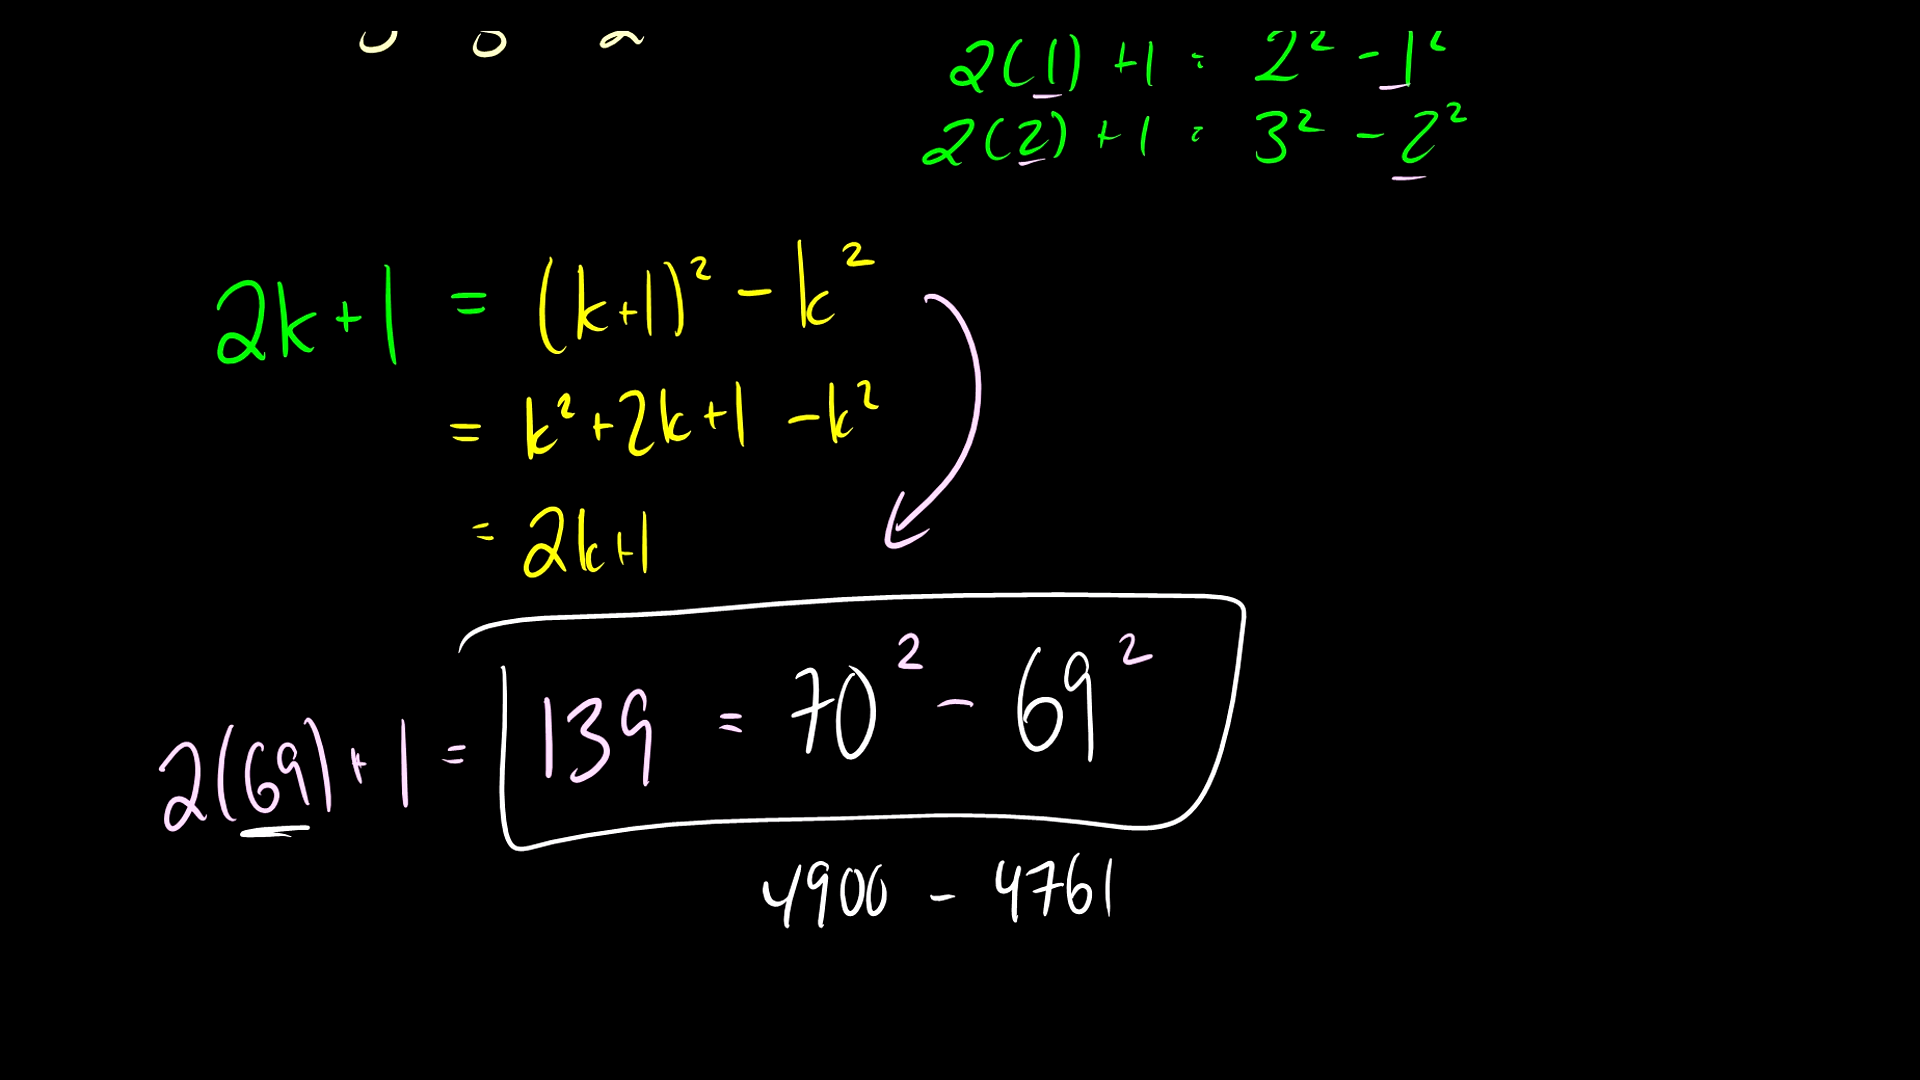 2(1) + 1 = 2² - 1²
2(2) + 1 = 3² - 2²
2k + 1 = (k+1)² - k²
= k² + 2k + 1 - k²
= 2k+1
2(69) + 1 = 139 = 70² - 69²
4900 - 4761